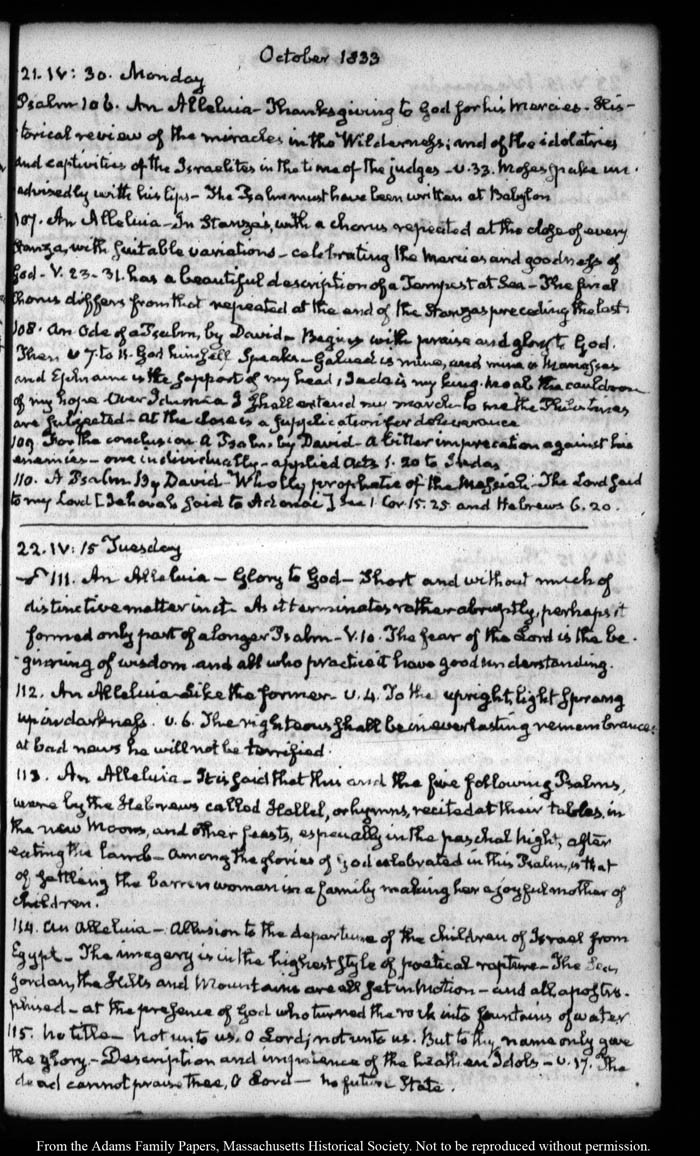 October 1833
21. IV: 30. Monday
Psalm 106. An Alleluia - Thanksgiving to God for his Mercies. His-
torical review of the miracles in the Wilderness; and of the idolatries
and captivities of the Israelites in the time of the judges - v. 33. Moses spake un-
advisedly with his lips - The Psalm must have been written at Babylon
107. An Alleluia - In Stanzas, with a chorus repeated at the close of every
Stanza, with suitable variations - celebrating the Mercies and goodness of
God - V. 23-31. has a beautiful description of a Tempest at Sea - The final
Chorus differs from that repeated at the end of the Stanzas preceding the last.
108. An Ode of a Psalm, by David - Begins with praise and glory to God.
Then v 7. to God himself speaks - Galaad is mine, and mine is Manasses
and Ephraim is the support of my head; Juda is my king. Moab the cauldron
of my hope Over Idumea I shall extend my march - to me the Philistines
are subjected - At the close is a supplication for deliverance
109. For the conclusion a Psalm, by David - A bitter imprecation against his
enemies - one individually - applied Acts 1. 20 to Judas
110. A Psalm By David - Wholly prophetic of the Messiah - The Lord said
to my Lord [Jehovah said to Adonai] See 1 Cor. 15. 25 and Hebrews 6. 20.
22. IV: 15 Tuesday
111. An Alleluia - Glory to God - Short and without much of
distinctive matter in it. As it terminates rather abruptly, perhaps it
formed only part of a longer Psalm - V. 10. The fear of the Lord is the be-
ginning of wisdom and all who practice it have good understanding.
112. An Alleluia - Like the former - v. 4. To the upright, light sprang
up in darkness. v. 6. The righteous shall be in everlasting remembrance:
at bad news he will not be terrified.
113. An Alleluia - It is said that this and the five following Psalms,
were by the Hebrews called Hallel, or hymns, recited at their tables, in
the new Moons, and other feasts, especially in the paschal night, after
eating the lamb - Among the glories of God celebrated in this Psalm, is that
of settling the barren woman in a family making her a joyful mother of
children.
114. An Alleluia - Allusion to the departure of the children of Israel from
Egypt - The imagery is in the highest style of poetical rapture - The Sea,
Jordan, the Hills and Mountains are all set in motion - and all apostro-
phised - at the presence of God who turned the rock into fountains of water
115. No title - Not unto us, O Lord; not unto us. But to thy name only give
the glory - Description and impotence of the heathen Idols - v. 17. The
dead cannot praise thee, O Lord - no future State.
From the Adams Family Papers, Massachusetts Historical Society. Not to be reproduced without permission.